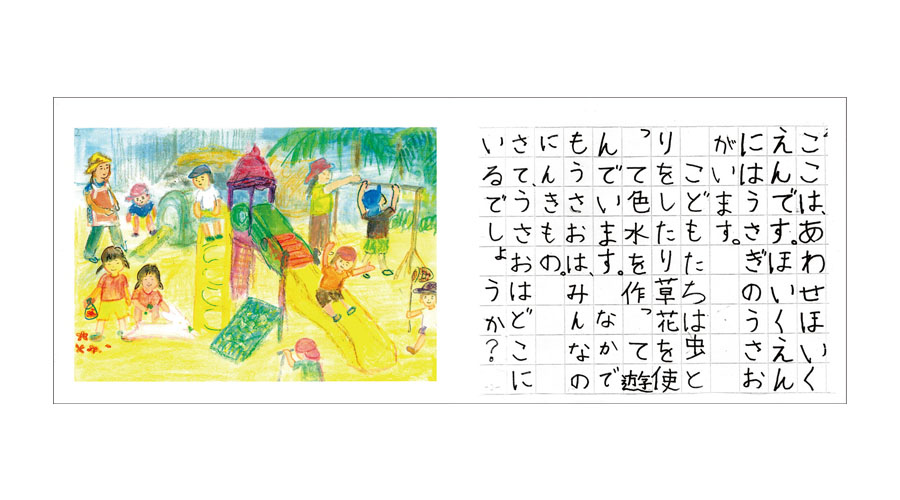 ここは、あわせほいく
えんです。ほいくえん
にはうさぎのうさお
がいます。
こどもたちは虫と
りをしたり草花を使
って色水を作って遊
んでいます。なかで
もうさおは、みんなの
にんきもの。
さて、うさおはどこに
いるでしょうか?